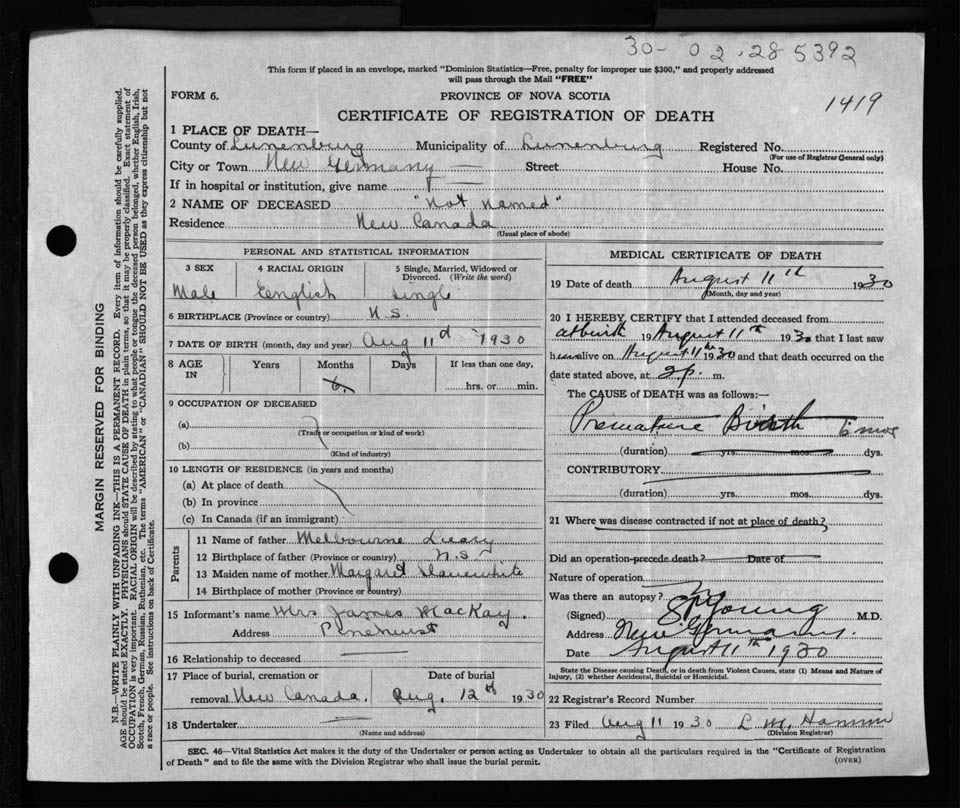 30-02-285392
This form if placed in an envelope, marked "Dominion Statistics—Free, penalty for improper use $300," and properly addressed
will pass through the Mail "FREE"
FORM 6.
PROVINCE OF NOVA SCOTIA
1419
CERTIFICATE OF REGISTRATION OF DEATH
1 PLACE OF DEATH—
County of Lunenburg Municipality of Lunenburg Registered No.
(For use of Registrar General only)
City or Town New Germany — Street House No.
If in hospital or institution, give name —
2 NAME OF DECEASED "Not Named"
Residence New Canada
(Usual place of abode)
PERSONAL AND STATISTICAL INFORMATION
3 SEX 4 RACIAL ORIGIN 5 Single, Married, Widowed or Divorced. (Write the word)
Male English Single
6 BIRTHPLACE (Province or country) N.S.
7 DATE OF BIRTH (month, day and year) Aug 11 d 1930
8 AGE IN Years Months Days If less than one day,
6. hrs. or min.
9 OCCUPATION OF DECEASED
(a)
(Trade or occupation or kind of work)
(b)
(Kind of industry)
10 LENGTH OF RESIDENCE (in years and months)
(a) At place of death
(b) In province
(c) In Canada (if an immigrant)
Parents
11 Name of father Melbourne
12 Birthplace of father (Province or country) N.S
13 Maiden name of mother Margaret
14 Birthplace of mother (Province or country)
15 Informant's name Mrs James MacKay.
Address Pinehurst
16 Relationship to deceased
17 Place of burial, cremation or Date of burial
removal New Canada. Aug. 12 d 1930
18 Undertaker
(Name and address)
MEDICAL CERTIFICATE OF DEATH
19 Date of death August 11th 1930
(Month, day and year)
20 I HEREBY CERTIFY that I attended deceased from
at birth 19 August 11th 1930 that I last saw
him alive on August 11th 1930 and that death occurred on
the date stated above, at 2 p. m.
The CAUSE of DEATH was as follows:—
Premature Birth 6 mos
(duration) yrs. mos. dys.
CONTRIBUTORY
(duration) yrs. mos. dys.
21 Where was disease contracted if not at place of death?
Did an operation precede death? Date of
Nature of operation
Was there an autopsy?
(Signed) Young M.D.
Address New Germany.
Date August 11th 1930
State the Disease causing Death, or in death from Violent Causes, state (1) Means and Nature of
Injury, (2) whether Accidental, Suicidal or Homicidal.
22 Registrar's Record Number
23 Filed Aug 11 1930 L. M.
(Division Registrar)
SEC. 46—Vital Statistics Act makes it the duty of the Undertaker or person acting as Undertaker to obtain all the particulars required in the "Certificate of Registration
of Death" and to file the same with the Division Registrar who shall issue the burial permit.
(OVER)
MARGIN RESERVED FOR BINDING
N.B.—WRITE PLAINLY WITH UNFADING INK—THIS IS A PERMANENT RECORD. Every item of information should be carefully supplied.
AGE should be stated EXACTLY. PHYSICIANS should STATE CAUSE OF DEATH in plain terms, so that it may be properly classified. Exact statement of
OCCUPATION is very important. RACIAL ORIGIN will be described by stating to what people or tongue the deceased person belonged, whether English, Irish,
Scotch, French, German, Russian, Ruthenian, etc. The terms "AMERICAN" or "CANADIAN" SHOULD NOT BE USED as they express citizenship but not
a race or people. See instructions on back of Certificate.